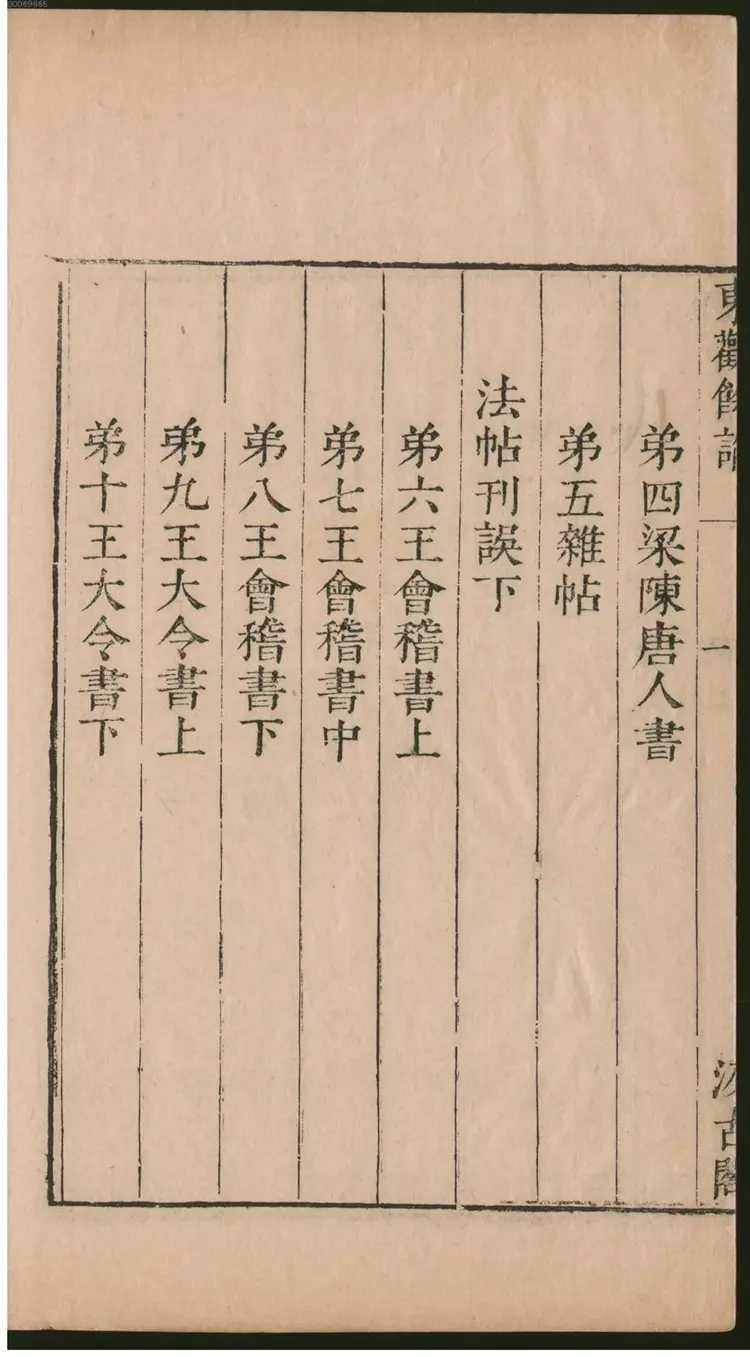 00069665
東觀餘論
一
汲古閣
弟四梁陳唐人書
弟五雜帖
法帖刊誤下
弟六王會稽書上
弟七王會稽書中
弟八王會稽書下
弟九王大令書上
弟十王大令書下